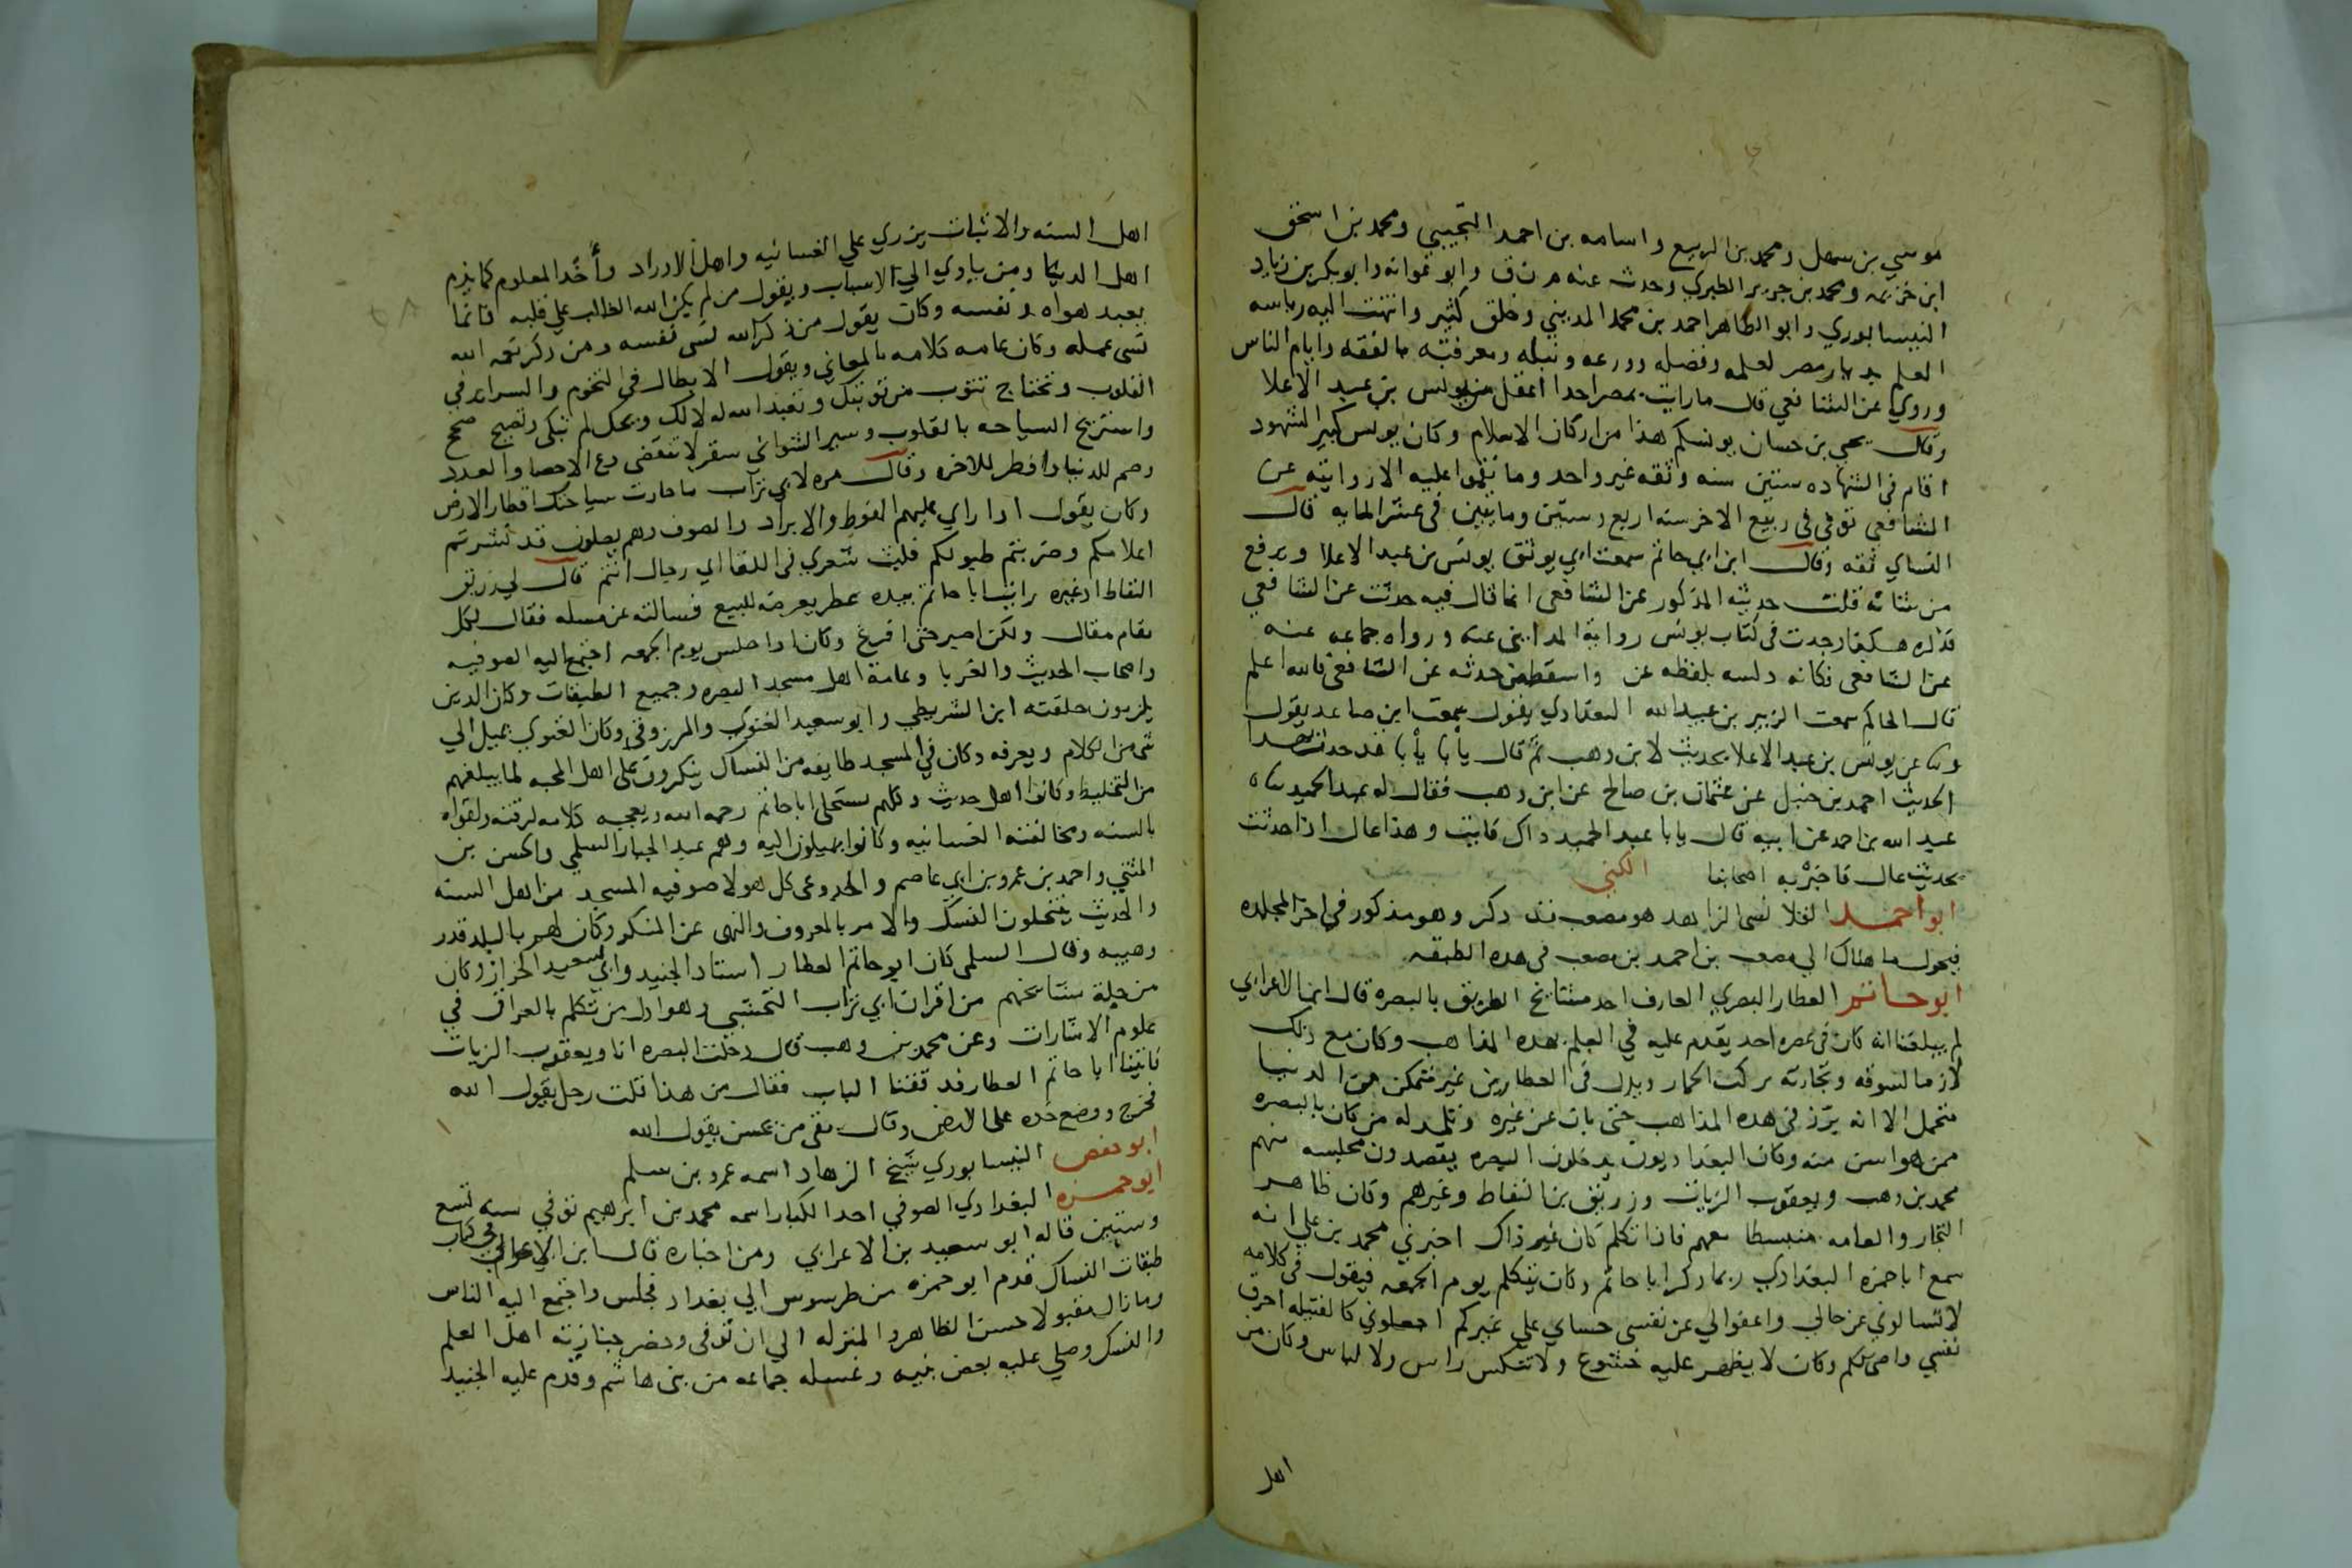 موسي بن سهل ومحمد بن الربيع واسامه بن احمد التجيبي ومحمد بن اسحق
ابن خزيمه ومحمد بن جرير الطبري وحدث عنه م ن ق وابو عوانه وابو بكر بن زياد
النيسابوري وابو الطاهر احمد بن محمد المديني وخلق كثير وانتهت اليه رياسه
العلم بديار مصر لعلمه وفضله وورعه ونبله ومعرفته بالفقه وايام الناس
وروي عن الشافعي قال مارايت بمصر احدا اعقل من يونس بن عبد الاعلا
وقال يحيي بن حسان يونسكم هذا من اركان الاسلام وكان يونس كبير الشهود
اقام في الشهاده ستين سنه وثقه غير واحد وما نقموا عليه الا روايته عن
الشافعي توفي في ربيع الاخر سنه اربع وستين ومايتين في عشر المايه قال
النساي ثقه وقال ابن ابي حاتم سمعت ابي يوثق يونس بن عبد الاعلا ويرفع
من شانه قلت حديثه المذكور عن الشافعي انما قال فيه حدثت عن الشافعي
هكذا وجدت في كتاب يونس رواية المدايني عنه ورواه جماعه عنه
عن الشافعي فكانه دلسه بلفظه عن واسقط من حدثه عن الشافعي فالله اعلم
قال الحاكم سمعت الزبير بن عبد الله البغدادي يقول سمعت ابن صاعد يقول
عن يونس بن عبد الاعلا بحديث لابن وهب ثم قال يا با يا با قد حدث بهذا
الحديث احمد بن حنبل عن عثمان بن صالح عن ابن وهب فقال له عبد الحميد
عبد الله بن احمد عن ابيه قال يا با عبد الحميد داك فايت وهذا عال اذا حدثت
بحديث عال فاخبر به اصحابنا الكني
ابو احمد القلانسي الزاهد هو مصعب قد ذكر وهو مذكور في اخر المجلده
فيحول ما هناك الي مصعب بن احمد بن مصعب في هده الطبقه
ابو حاتم العطار البصري العارف احد مشايخ الطريق بالبصره قال ابن الاعرابي
لم يبلغنا انه كان في عصره احد يقدم عليه في العلم بهذه المذاهب وكان مع ذلك
لازما لسوقه وتجارته يركب الحمار وينزل في العطارين غير متمكن من الدنيا
متحمل الا انه برز في هده المذاهب حتي بان عن غيره وتلمد له من كان بالبصره
ممن هو اسن منه وكان البغداديون يدخلون البصره يقصدون مجلسه منهم
محمد بن وهب ويعقوب الزيات وزريق بن النفاط وغيرهم وكان ظاهر
التجار والعامه منبسطا معهم فاذا تكلم كان غير ذاك اخبرني محمد بن علي انه
سمع ابا حمزه البغدادي ربما ذكر ابا حاتم وكان يتكلم يوم الجمعه فيقول في كلامه
لا تسالوني عن حالي واعفوالي عن نفسي حساي علي غيركم اجعلوني كالفتيله احرق
نفسي واضي لكم وكان لا يظهر عليه خشوع ولا تنكس راس ولا لباس وكان من
اهل
اهل السنه والاثبات يزري علي الغسانيه واهل الاوراد واخذ المعلوم كما يذم
اهل الدنيا ومن ياوي الي الاسباب ويقول من لم يكن الله الغالب علي قلبه فانما
يعبد هواه ونفسه وكان يقول من ذكر الله نسي نفسه ومن ذكر نعم الله
نسي عمله وكان عامه كلامه بالمعاني ويقول الابطال في التخوم والسراير في
القلوب وتحتاج تتوب من توبتك وتعبد الله له لا لك ويحك لم تبكي وتصيح صحح
واستريح السياحه بالقلوب وسير التواني سفر لا تنقضي دع الاحصا والعدد
وصم للدنيا وافطر للاخره وقال مره لابي تراب ما جازت سياحتك اقطار الارض
وكان يقول ادا راي عليهم الفوط والابراد والصوف وهم يصلون قد نشرتم
اعلامكم وضربتم طبولكم فليت شعري في اللقا اي رجال انتم قال لي زريق
النفاط او غيره رايت ابا حاتم بيده عطر يعرضه للبيع فسالته عن مسله فقال لكل
مقام مقال ولكن اصبر حتي افرغ وكان ادا جلس يوم الجمعه اجتمع اليه الصوفيه
واصحاب الحديث والغربا وعامة اهل مسجد البصره وجميع الطبقات وكان الدين
يلزمون حلقته ابن الشريطي وابو سعيد الغنوي والمرزوقي وكان الغنوي يميل الي
شي من الكلام ويعرفه وكان في المسجد طايفه من النساك ينكرون علي اهل المحبه لما يبلغهم
من التخليط وكانوا اهل حديث وكلهم يستحلي ابا حاتم رحمه الله ويعجبه كلامه لرقته ولقوله
بالسنه ومخالفته الغسانيه وكانوا يميلون اليه وهم عبد الجبار السلمي والحسن بن
المثني واحمد بن عمرو بن ابي عاصم والجدوعي كل هولا صوفيه المسجد من اهل السنه
والحديث ينتحلون النسك والامر بالمعروف والنهي عن المنكر وكان لهم بالبلد قدر
وهيبه وقال السلمي كان ابو حاتم العطار استاد الجنيد وابي سعيد الخراز وكان
من جلة مشايخهم من اقران ابي تراب النخشبي وهو اول من تكلم بالعراق في
علوم الاشارات وعن محمد بن وهب قال دخلت البصره انا ويعقوب الزيات
فاتينا ابا حاتم العطار فدققنا الباب فقال من هذا قلت رجل يقول الله
فخرج ووضع خده علي الارض وقال بقي من يحسن يقول الله
ابو حفص النيسابوري شيخ الزهاد اسمه عمرو بن سلم
ابو حمزه البغدادي الصوفي احد الكبار اسمه محمد بن ابرهيم توفي سنه تسع
وستين قاله ابو سعيد بن الاعرابي ومن اخباره قال ابن الاعرابي في كتاب
طبقات النساك قدم ابو حمزه من طرسوس الي بغداد فجلس واجتمع اليه الناس
وما زال مقبولا حسن الظاهر والمنزله الي ان توفي وحضر جنازته اهل العلم
والنسك وصلي عليه بعض بنيه وغسله جماعه من بني هاشم وقدم عليه الجنيد